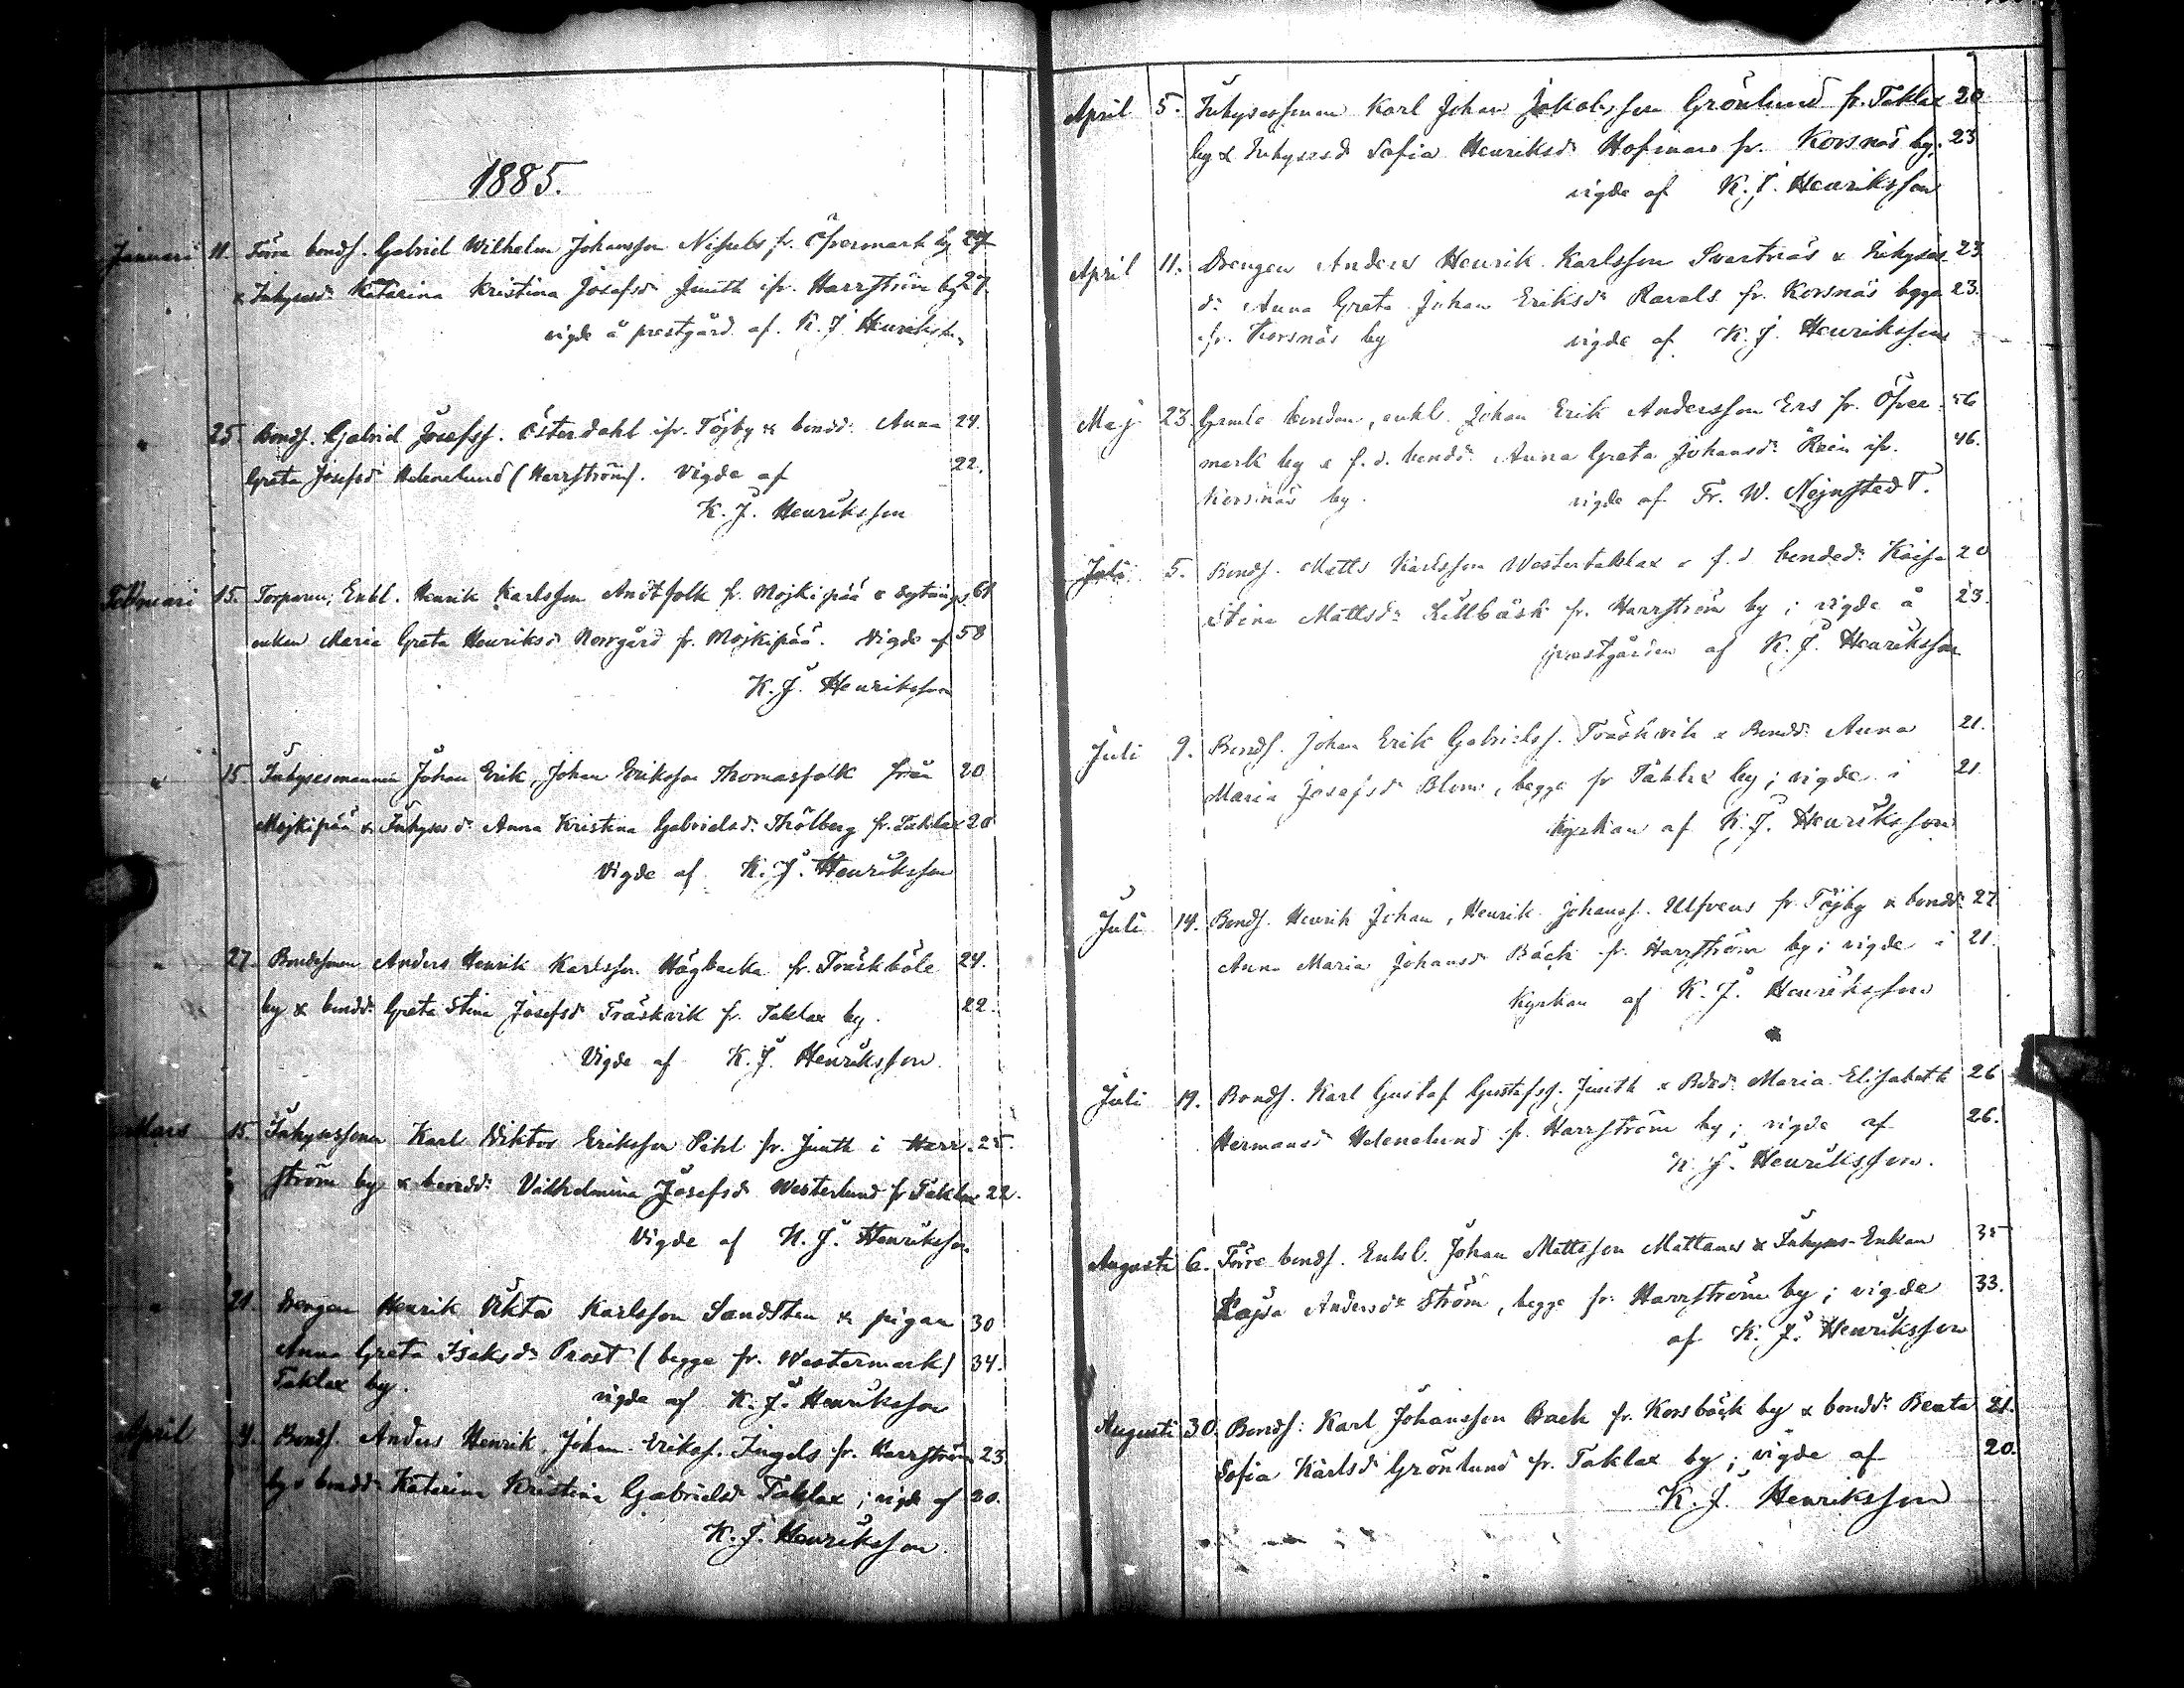 1885.
Januari 11. Förra bonds. Gabriel Wilhelm Johansson Nissels fr. Öfvermark by 27
& Inhysesd: Katarina Kristina Josefsd: Juuth ifr. Harrström by 27.
vigde å prestgård. af K. J. Henriksson
" 25. Bonds. Gabriel Josefss. Österdahl ifr. Töjby & bondd: Anna 24.
Greta Josefsd: Helenelund (Harrström). Vigde af 22.
K. J. Henriksson
Februari 15. Torparen, Enkl. Henrik Karlsson Andtfolk fr. Mojkipää & 61
enkan Maria Greta Henriksd: Norrgård fr. Mojkipää. Vigde af 58
K. J. Henriksson
" 15. Inhysesmannen Johan Erik, Johan Eriksson Thomasfolk från 20
Mojkipää & Inhysesd: Anna Kristina Gabrielsd: Thölberg fr. Taklax 20
Vigde af K. J. Henriksson
" 27. Bondesonen Anders Henrik Karlsson Högbacka fr. Träskböle 24.
by & bondd: Greta Stina Josefsd: Träskvik fr. Taklax by. 22.
Vigde af K. J. Henriksson
Mars 15. Inhysessonen Karl Wiktor Eriksson Pihl fr. Juuth i Harr- 25.
ström by & bondd: Vilhelmina Josefsd: Westerlund fr Taklax 22.
Vigde af K. J. Henriksson
" 21. Drengen Henrik Viktor Karlsson Sandsten & pigan 30
Anna Greta Isaksd: Prost (begge fr. Westermark) 34.
Taklax by. vigde af K. J. Henriksson
April 4. Bonds. Anders Henrik, Johan Erikss. Ingels fr. Harrström 23
by & bondd: Katarina Kristina Gabrielsd: Taklax; vigde af 20.
K. J. Henriksson
April 5. Inhysessonen Karl Johan Jakobsson Grönlund fr. Taklax 20
by & Inhysesd: Sofia Henriksd: Hofman fr. Korsnäs by. 23
vigde af K. J. Henriksson
April 11. Drengen Anders Henrik Karlsson Svartnäs & Inhyses 23
d: Anna Greta Johan Eriksd: Ravals fr. Korsnäs begge 23.
fr. Korsnäs by vigde af K. J. Henriksson
Maj 23. Gamle bonden, enkl. Johan Erik Andersson Ers fr. Öfver- 56
mark by & f. d. bondd: Anna Greta Johansd: Rein ifr. 46.
Korsnäs by. vigde af Fr. W. Nejnstedt.
Juli 5. Bonds. Matts Karlsson Westertaklax & f. d. bonded: Kaisa 20
Stina Mattsd: Lillbäck fr. Harrström by; vigde å 23.
prestgården af K. J. Henriksson
Juli 9. Bonds. Johan Erik Gabrielss. Träskvik & Bondd: Anna 21.
Maria Josefsd: Blom, begge fr Taklax by; vigde i 21.
Kyrkan af K. J. Henriksson
Juli 14. Bonds. Henrik Johan, Henrik Johanss. Ulfvens fr. Töjby & bondd: 27
Anna Maria Johansd: Bäck fr. Harrström by; vigde i 21.
Kyrkan af K. J. Henriksson
Juli 19. Bonds. Karl Gustaf Gustafss. Juuth & Bdsd: Maria Elisabeth 26
Hermansd Helenelund fr. Harrström by; vigde af 26.
K. J. Henriksson.
Augusti 6. Förre bonds. Enkl. Johan Mattsson Mattans & Inhyses-Enkan 35
Kajsa Andersd: Ström, begge fr. Harrström by; vigde 33.
af K. J. Henriksson
Augusti 30. Bonds: Karl Johansson Back fr. Korsbäck by & bondd: Beata 21.
Sofia Karlsd: Grönlund fr. Taklax by; vigde af 20.
K. J. Henriksson